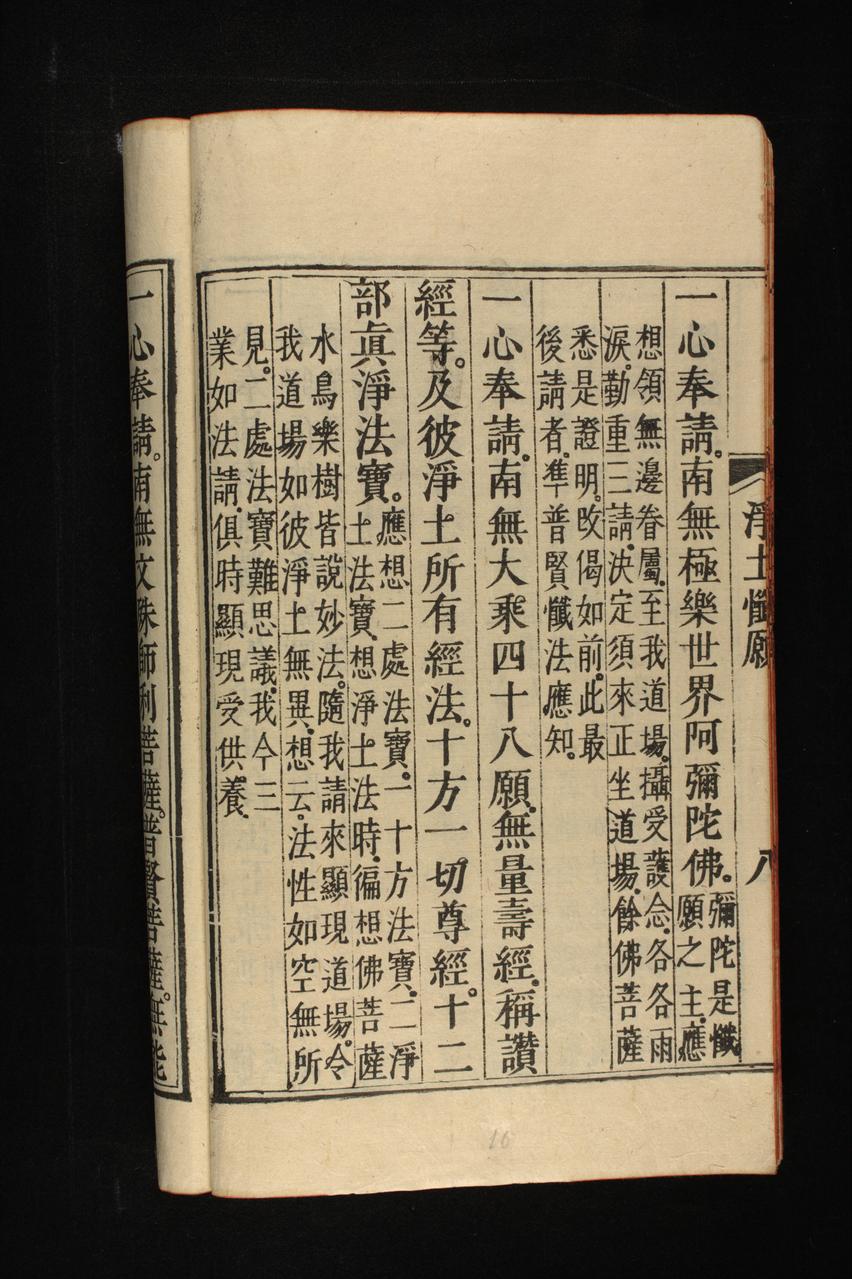 淨土懺願
八
一心奉請。南無極樂世界阿彌陀佛。彌陀是懺
願之主.應
想領無邊眷屬.至我道場.攝受護念.各各雨
淚.勤重三請.決定須來正坐道場.餘佛菩薩
悉是證明.改偈如前.此最
後請者.準普賢懺法應知.
一心奉請。南無大乘四十八願.無量壽經.稱讚
經等。及彼淨土所有經法。十方一切尊經。十二
部眞淨法寶。應想二處法寶。一十方法寶.二淨
土法寶.想淨土法時.徧想佛菩薩
水鳥樂樹皆說妙法。隨我請來顯現道場。令
我道場如彼淨土無異.想云.法性如空無所
見。二處法寶難思議.我今三
業如法請.俱時顯現受供養.
一心奉請。南無文殊師利菩薩。普賢菩薩。無能
16